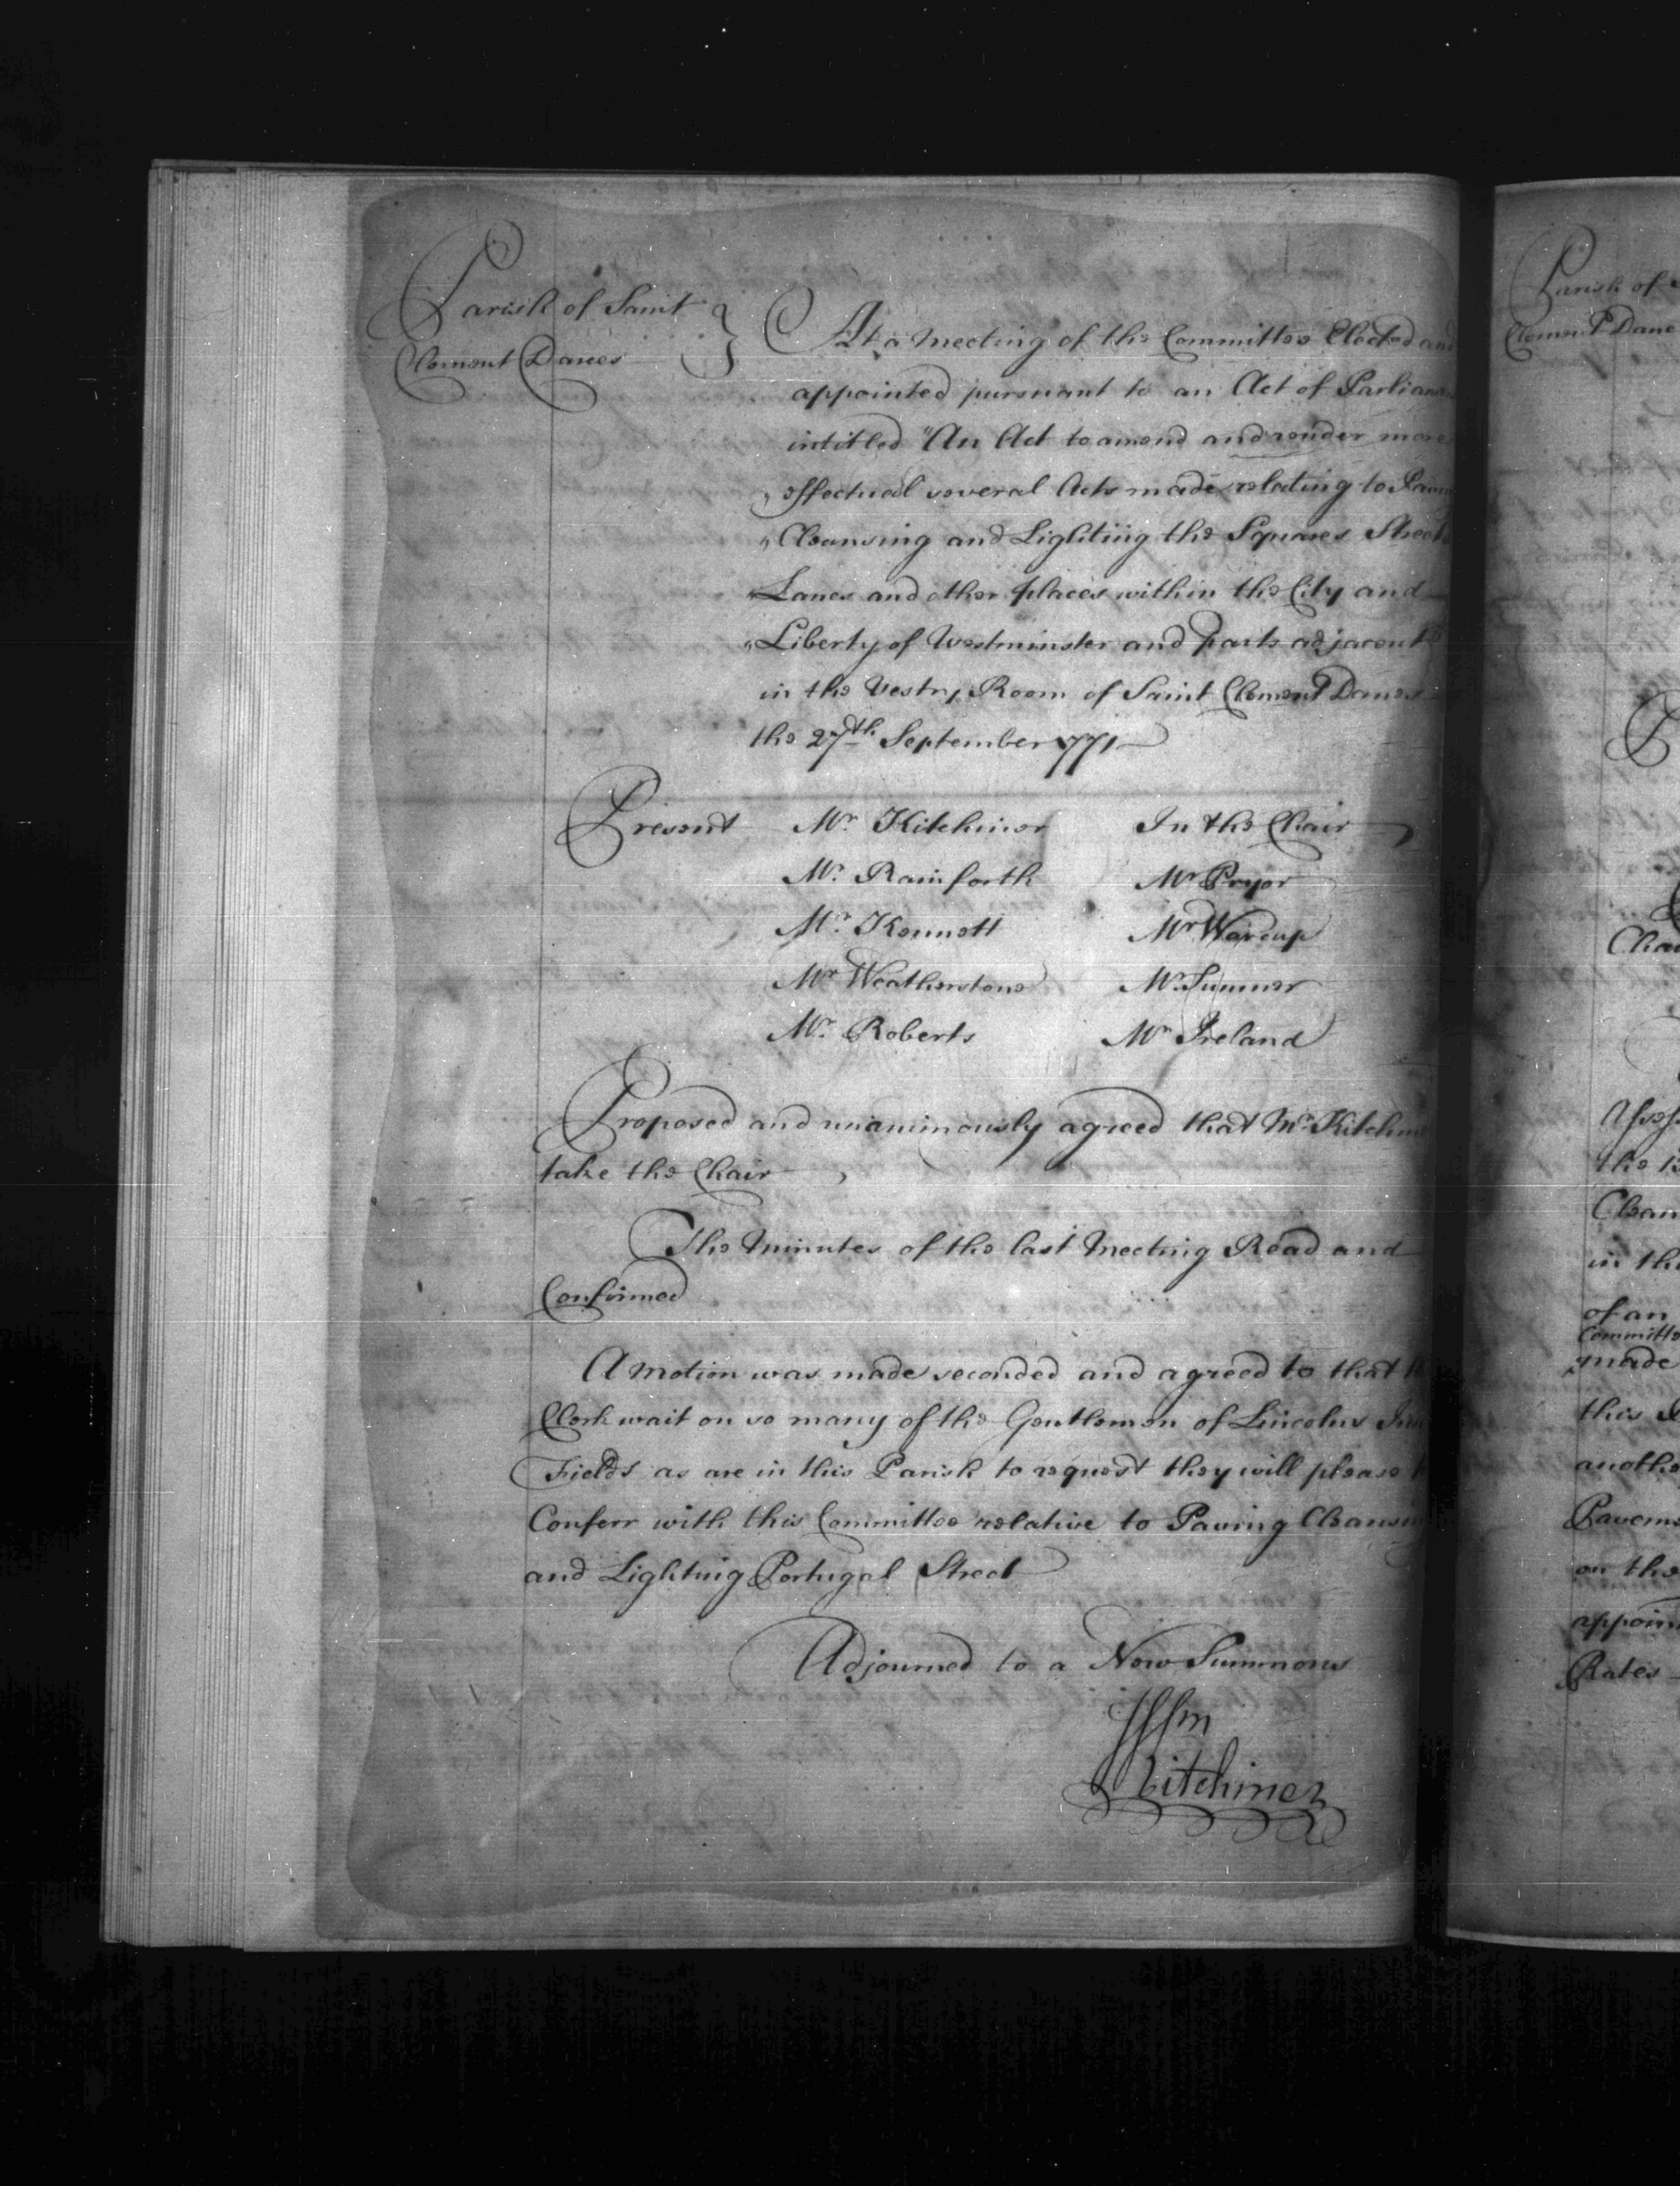 Parish of Saint
Clement Danes
At a Meeting of the Committee Elected and
appointed pursuant to an Act of Parliam
intitled "An Act to amend and render more
" effectual several Acts made relating to Pav
" Cleansing and Lighting the Squares Streets
" Lanes and other places within the City and
" Liberty of Westminster and parts adjacent"
in the Vestry Room of Saint Clement Danes
the 27th September 1771
Present Mr. Kitchiner In the Chair
Mr. Rainforth Mr Pryor
Mr. Kennett Mr Warcup
Mr Weatherstone Mr Sumner
Mr. Roberts Mr Ireland
Proposed and unanimously agreed that Mr. Kitchin
take the Chair
The Minutes of the last Meeting Read and
Confirmed
A Motion was made seconded and agreed to that th
Clerk wait on so many of the Gentlemen of Lincolns Inn
Fields as are in this Parish to request they will please t
Conferr with this Committee relative to Paving Cleansin
and Lighting Portugal Street
Adjourned to a New Summons
Wm
Kitchiner
Parish of S
Clement Dane
Chai
Assess
the
Clean
in the
of an
Committe
made
this
anothe
Paveme
on the
appoin
Rates